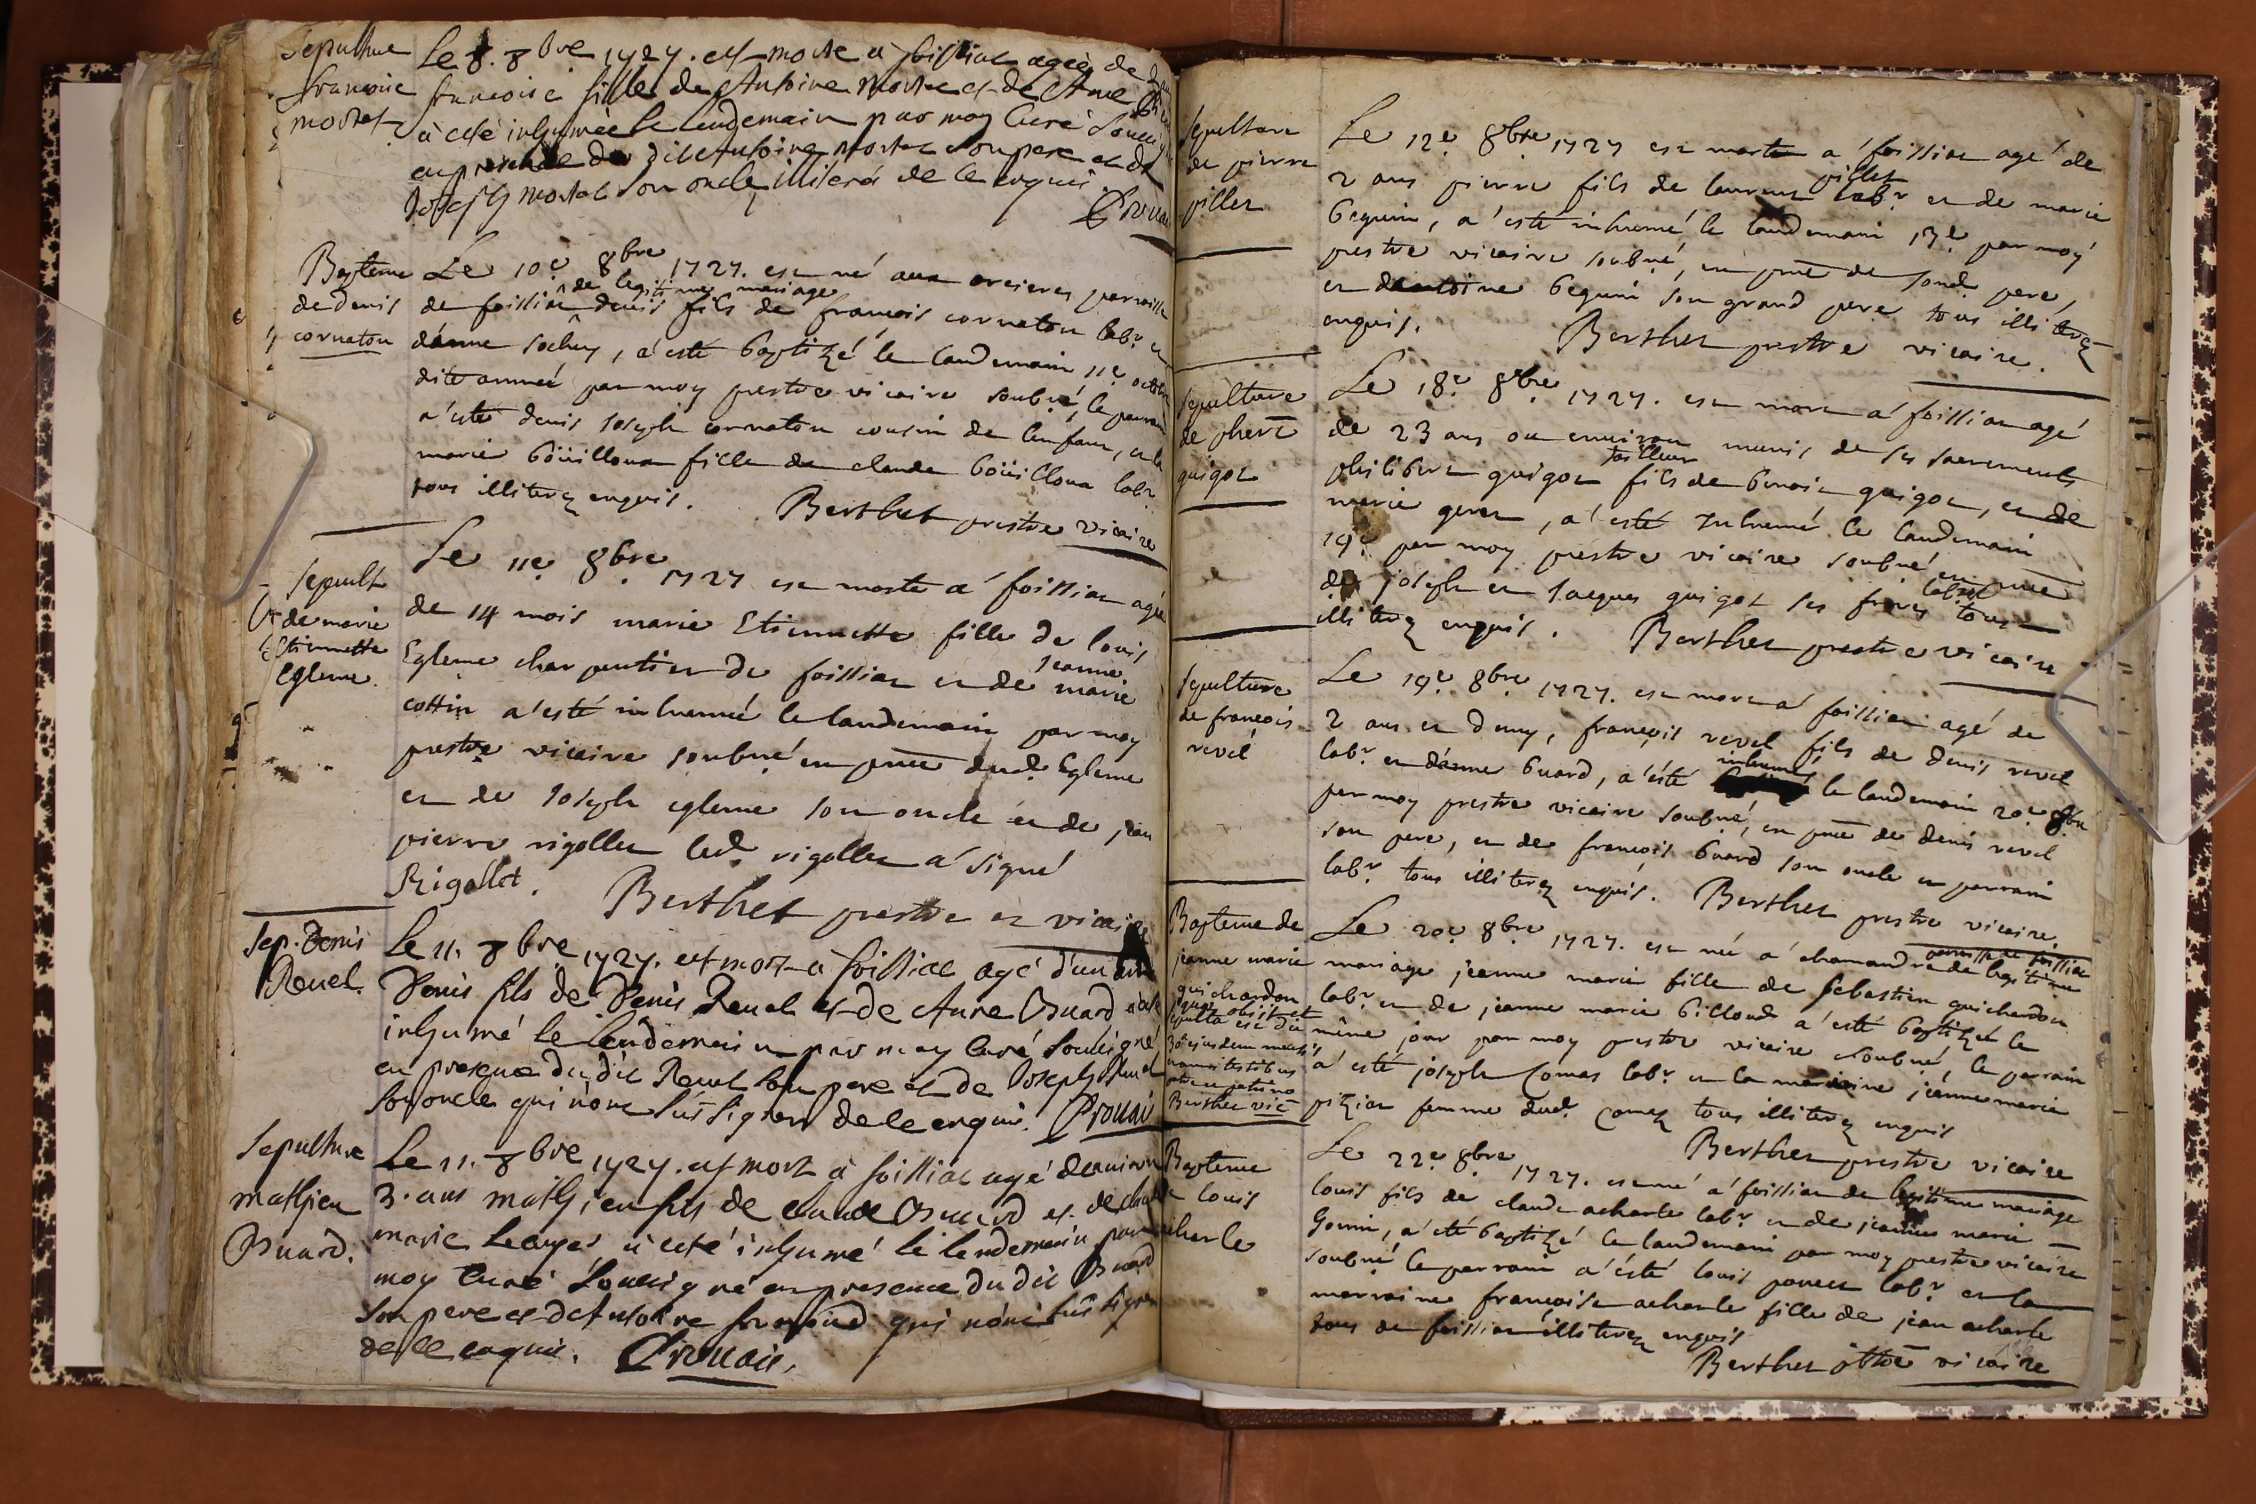 Sepulture
francoise
mortet
Le 8. 8bre 1727. est morte a foissiat agée de
francoise fille de Antoine Mortet et de Anne
à esté inhumée le lendemain par moy Curé
en presence du dit Antoine Mortet son pere et de
Joseph Mortet son oncle illiterés de ce enquis
Bapteme
de denis
cornaton
Le 10e. 8bre 1727. est né aux oreieres parroisse
de foissiat de legitime mariage denis fils de francois cornaton labr. et
d'anne sochay, a'esté baptizé le landemain 11e. octobre
dite année par moy prestre vicaire soubné, le parrain
a'esté denis Joseph cornaton cousin de lenfant, et la
marie boüilloux fille de claude boüilloux labr.
tous illiterez enquis. Berthet prestre vicaire
Sepult
de marie
Etiennette
Egleme.
Le 11e. 8bre. 1727 est morte a' foissiat agée
de 14 mois marie Etiennette fille de louis
Egleme charpentier de foissiat et de jeanne marie
cottin a'esté inhumée le landemain par moy
prestre vicaire soubné en pnce dud. Egleme
et de Joseph egleme son oncle et de jean
pierre rigollet led. rigollet a' signé
Rigollet. Berthet prestre et vicaire
Sep. Denis
Revel.
Le 11. 8bre 1727. est mort à foissiat agé d'un an
Denis fils de Denis Revel et de Anne Buard a esté
inhumé le lendemain par moy curé soussigné
en presence du dit Revel son pere et de Joseph Revel
son oncle qui n'ont sus signer de ce enquis.
Sepulture
mathieu
Buard.
Le 11. 8bre 1727. est mort à foissiat agé denviron
3. ans mathieu fils de claude Buard et de
marie à esté inhumé le lendemain par
moy Curé soussigné en presence du dit Buard
son pere et de Antoine qui n'ont sus signer
de ce enquis.
Sepulture
de pierre
pillet
Le 12e 8bre 1727 est morte a' foissiat agé de
2 ans pierre fils de laurent pillet labr. et de marie
beguin, a'esté inhumé le landemain 13e. par moy
prestre vicaire soubné, en pnce de sond. pere,
et dantoine beguin son grand pere tous illiterez
enquis. Berthet prestre vicaire.
Sepulture
de phert
guigot
Le 18e. 8bre. 1727. est mort a' foissiat agé
de 23 ans ou environ munis de ses sacrements
philibert guigot tailleur fils de benoit guigot, et de
marie, a'esté Inhumé le landemain
19e. par moy prestre vicaire soubné en pnce
de joseph et Jacques guigot ses freres labrs tous
illiterez enquis. Berthet prestre vicaire
Sepulture
de francois
revel
Le 19e. 8bre. 1727. est mort a' foissiat agé de
2 ans et demy, françois revel fils de denis revel
labr. et d'anne buard, a'esté inhumé le landemain 20e. 8bre
par moy prestre vicaire soubné, en pnce de denis revel
son pere, et de françois buard son oncle et parrain
labr. tous illiterez enquis. Berthet prestre vicaire.
Bapteme de
jeanne marie
guichardon
30e ejusdem mensis
Berthet vic
Le 20e. 8bre. 1727. est née a' chamandre parroisse de foissiat de legitime
mariage jeanne marie fille de sebastien guichardon
labr. et de jeanne marie billoud a'esté baptizée le
même jour par moy prestre vicaire soubné, le parrain
a' esté joseph Comas labr. et la marraine jeanne marie
pitiat femme dud. Comas tous illiterez enquis
Berthet prestre vicaire
Bapteme
de louis
acharle
Le 22e. 8bre 1727. est né a' foissiat de legitime mariage
louis fils de claude acharle labr. et de jeanne marie
Gonin, a'eté baptizé le landemain par moy prestre vicaire
soubné le parrain a'ésté louis poncet labr. et la
marraine françoise acharle fille de jean acharle
tous de foissiat illiterez enquis
Berthet ptre vicaire